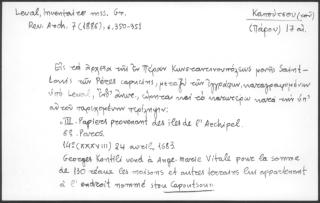 Leval, Inventaire mss. Gr.
Rev. Arch. 7 (1886), σ. 350-351
Καπούτσου (τοῦ)
(Πάρου) 17 αἰ.
Εἰς τὰ ἀρχεῖα τῆς ἐν Πέραν Κωνσταντινουπόλεως μονῆς Saint-
Louis τῶν Pères capucins, μεταξὺ τῶν ἐγγράφων, καταγραφομένων
ὑπὸ Leval, ἔνθ' ἄνωτ., εὕρηται καὶ τὸ κατωτέρω κατὰ τὴν ὑπ'
αὐτοῦ παρεχομένην περίληψιν:
"III. Papiers provenant des îles de l'Archipel.
68. Paros.
145 (XXXVIII) 24 avril, 1683.
Georges Kontili vend à Ange-Marie Vitale pour la somme
de 130 réaux les maisons et autres terrains lui appartenant
à l'endroit nommé stou Capoutsou"